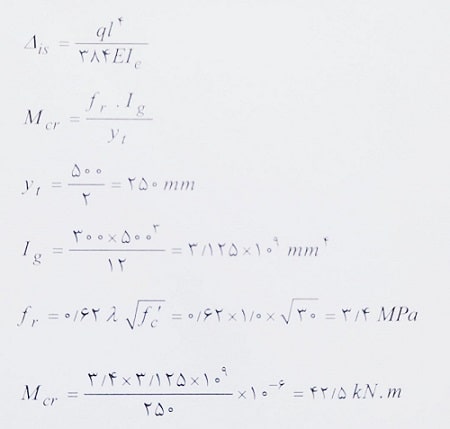 Δis = ql^۴ / ۳۸۴EIe
Mcr = fr . Ig / yt
yt = ۵۰۰ / ۲ = ۲۵۰ mm
Ig = ۳۰۰×۵۰۰^۳ / ۱۲ = ۳/۱۲۵×۱۰^۹ mm^۴
fr = ۰/۶۲ λ √f′c = ۰/۶۲×۱/۰×√۳۰ = ۳/۴ MPa
Mcr = ۳/۴×۳/۱۲۵×۱۰^۹ / ۲۵۰ ×۱۰^−۶ = ۴۲/۵ kN.m